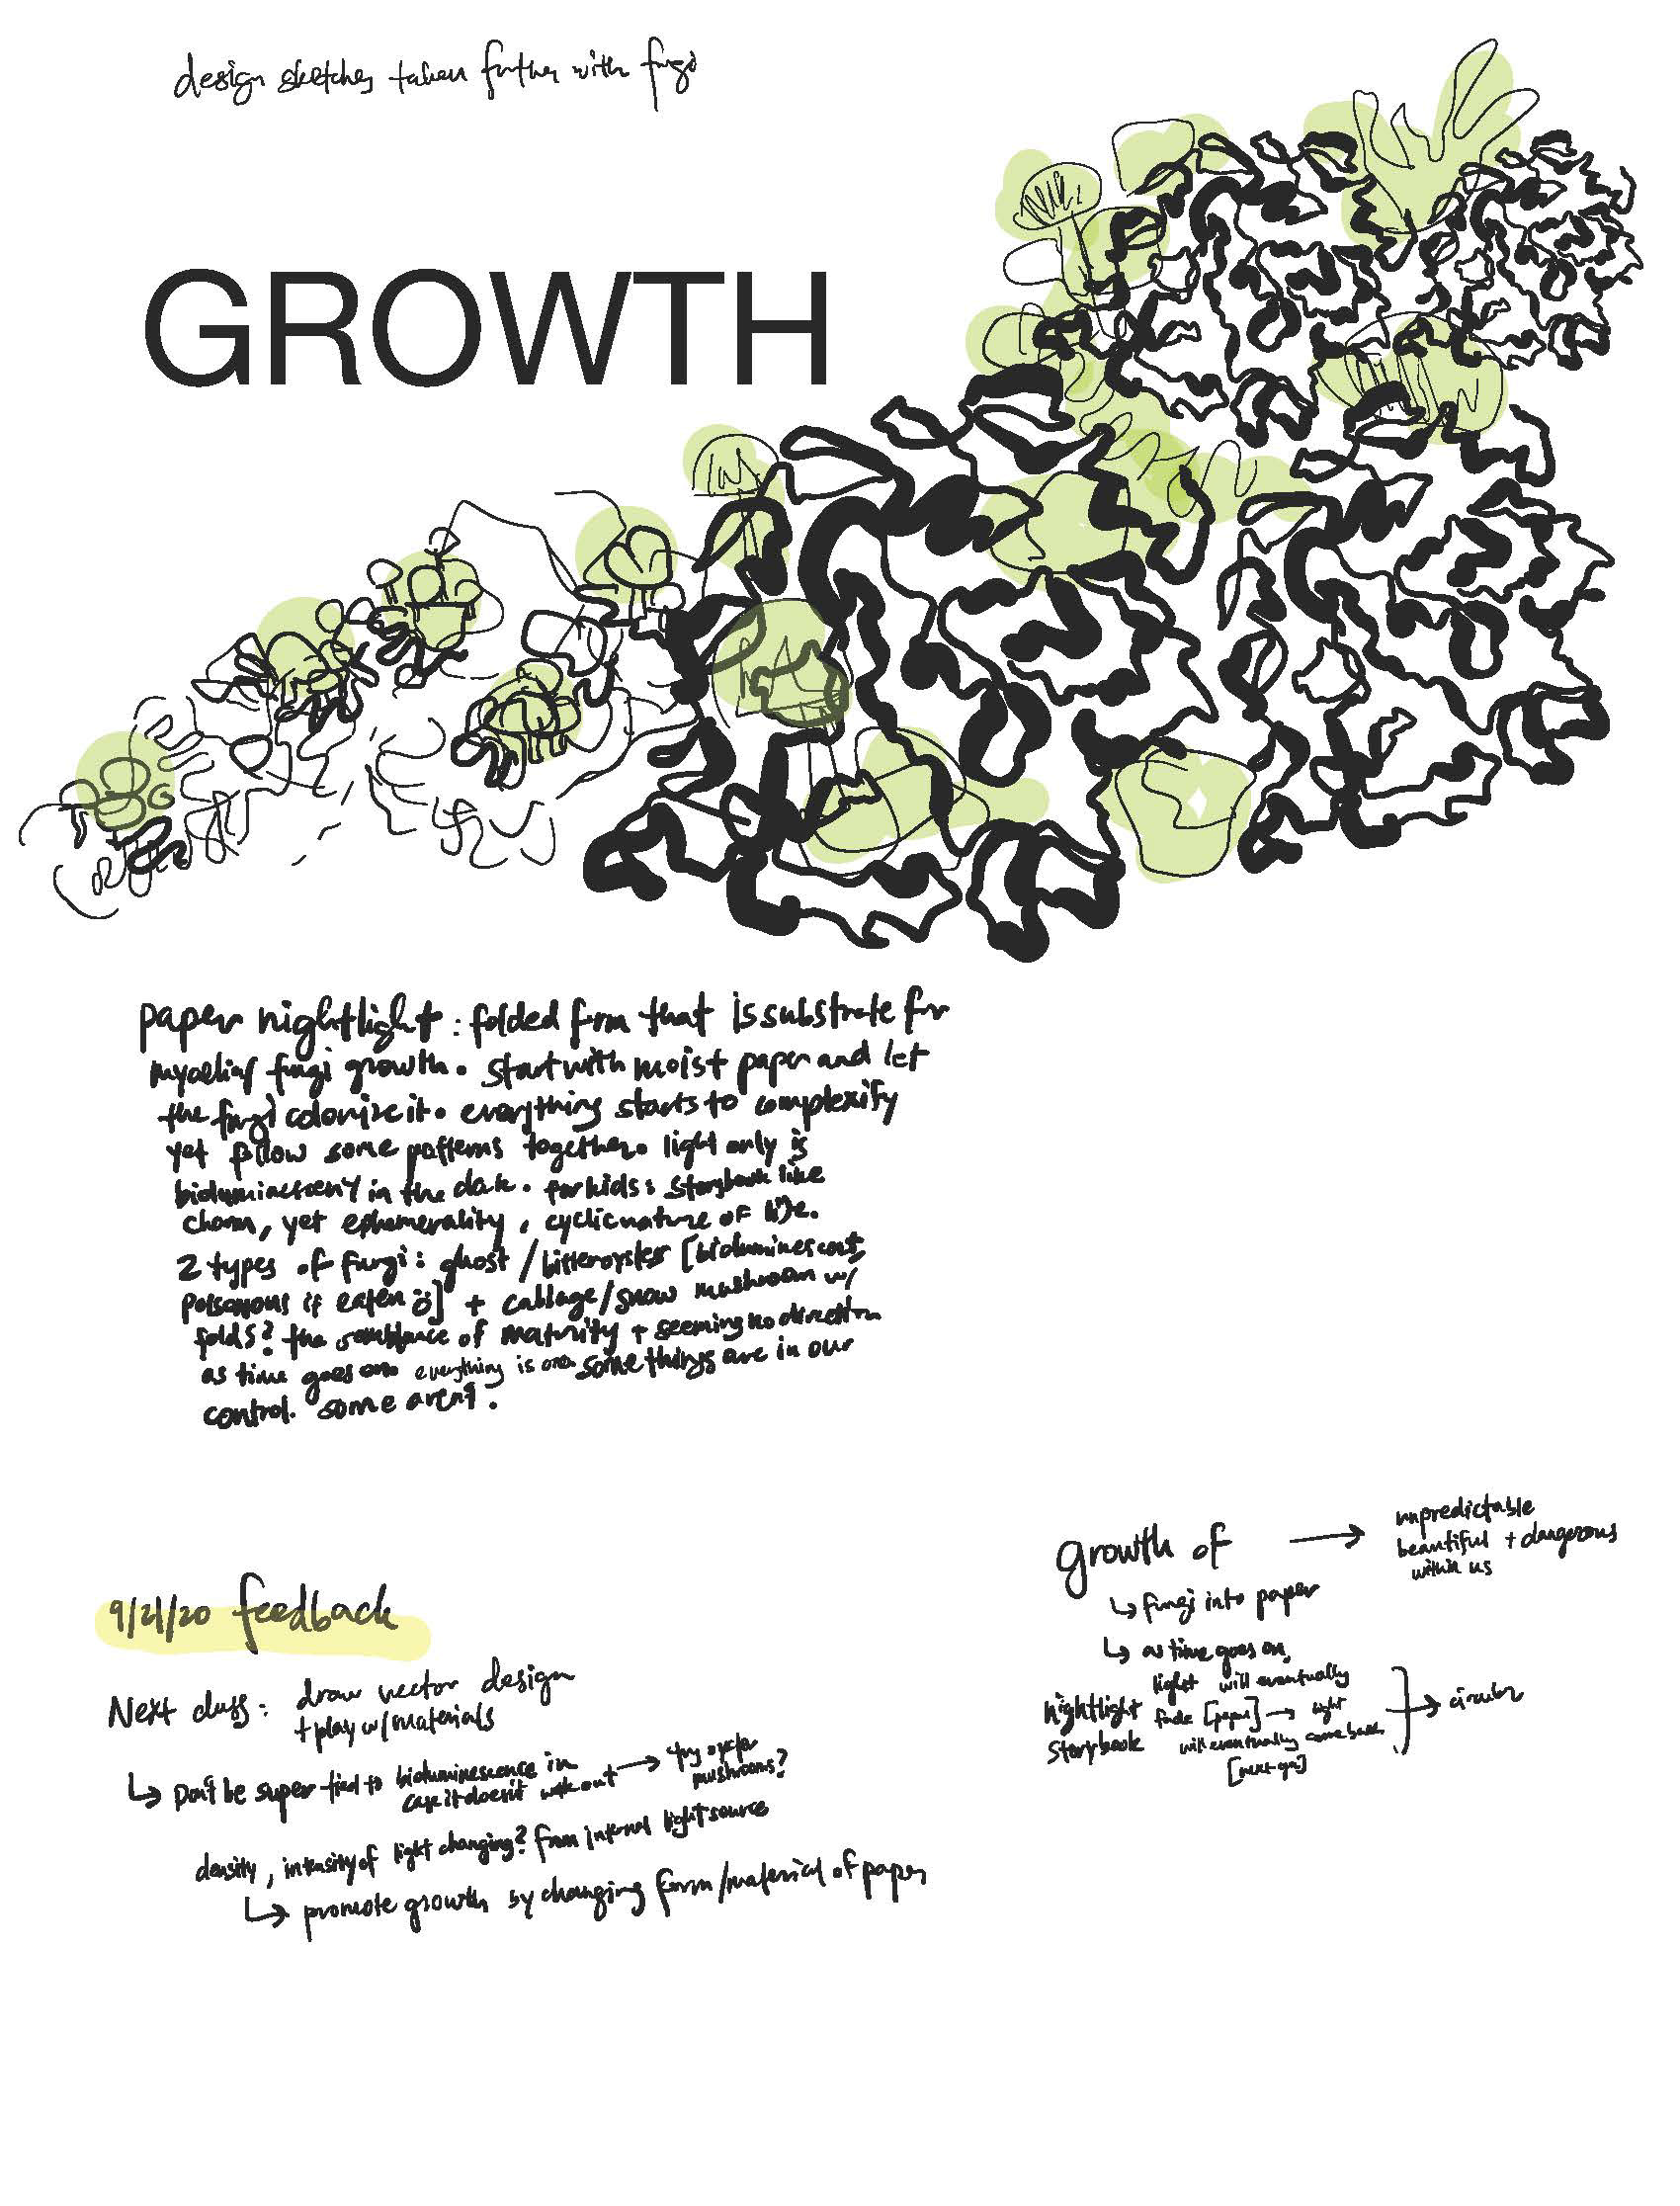 design sketches taken further with fungi
GROWTH
paper nightlight: folded form that is substrate for
fungi growth. start with moist paper and let
the fungi colonize it. everything starts to complexify
yet follow some patterns together. light only is
in the dark. for kids: storybook like
charm, yet ephemerality, cyclic nature of life.
2 types of fungi: ghost / bitter oyster [bioluminescent,
poisonous if eaten ö] + cabbage/snow mushroom w/
folds? the semblance of maturity + seeming no direction
as time goes on. everything is one. some things are in our
control. some aren't.
growth of → unpredictable
beautiful + dangerous
within us
↳ fungi into paper
↳ as time goes on,
light will eventually
nightlight fade [paper] → light
storybook will eventually come back → circular
[next gen]
9/21/20 feedback
Next class: draw vector design
+ play w/ materials
↳ Don't be super tied to bioluminescence in
case it doesn't work out → try oyster
mushrooms?
density, intensity of light changing? from internal light source
↳ promote growth by changing form/material of paper